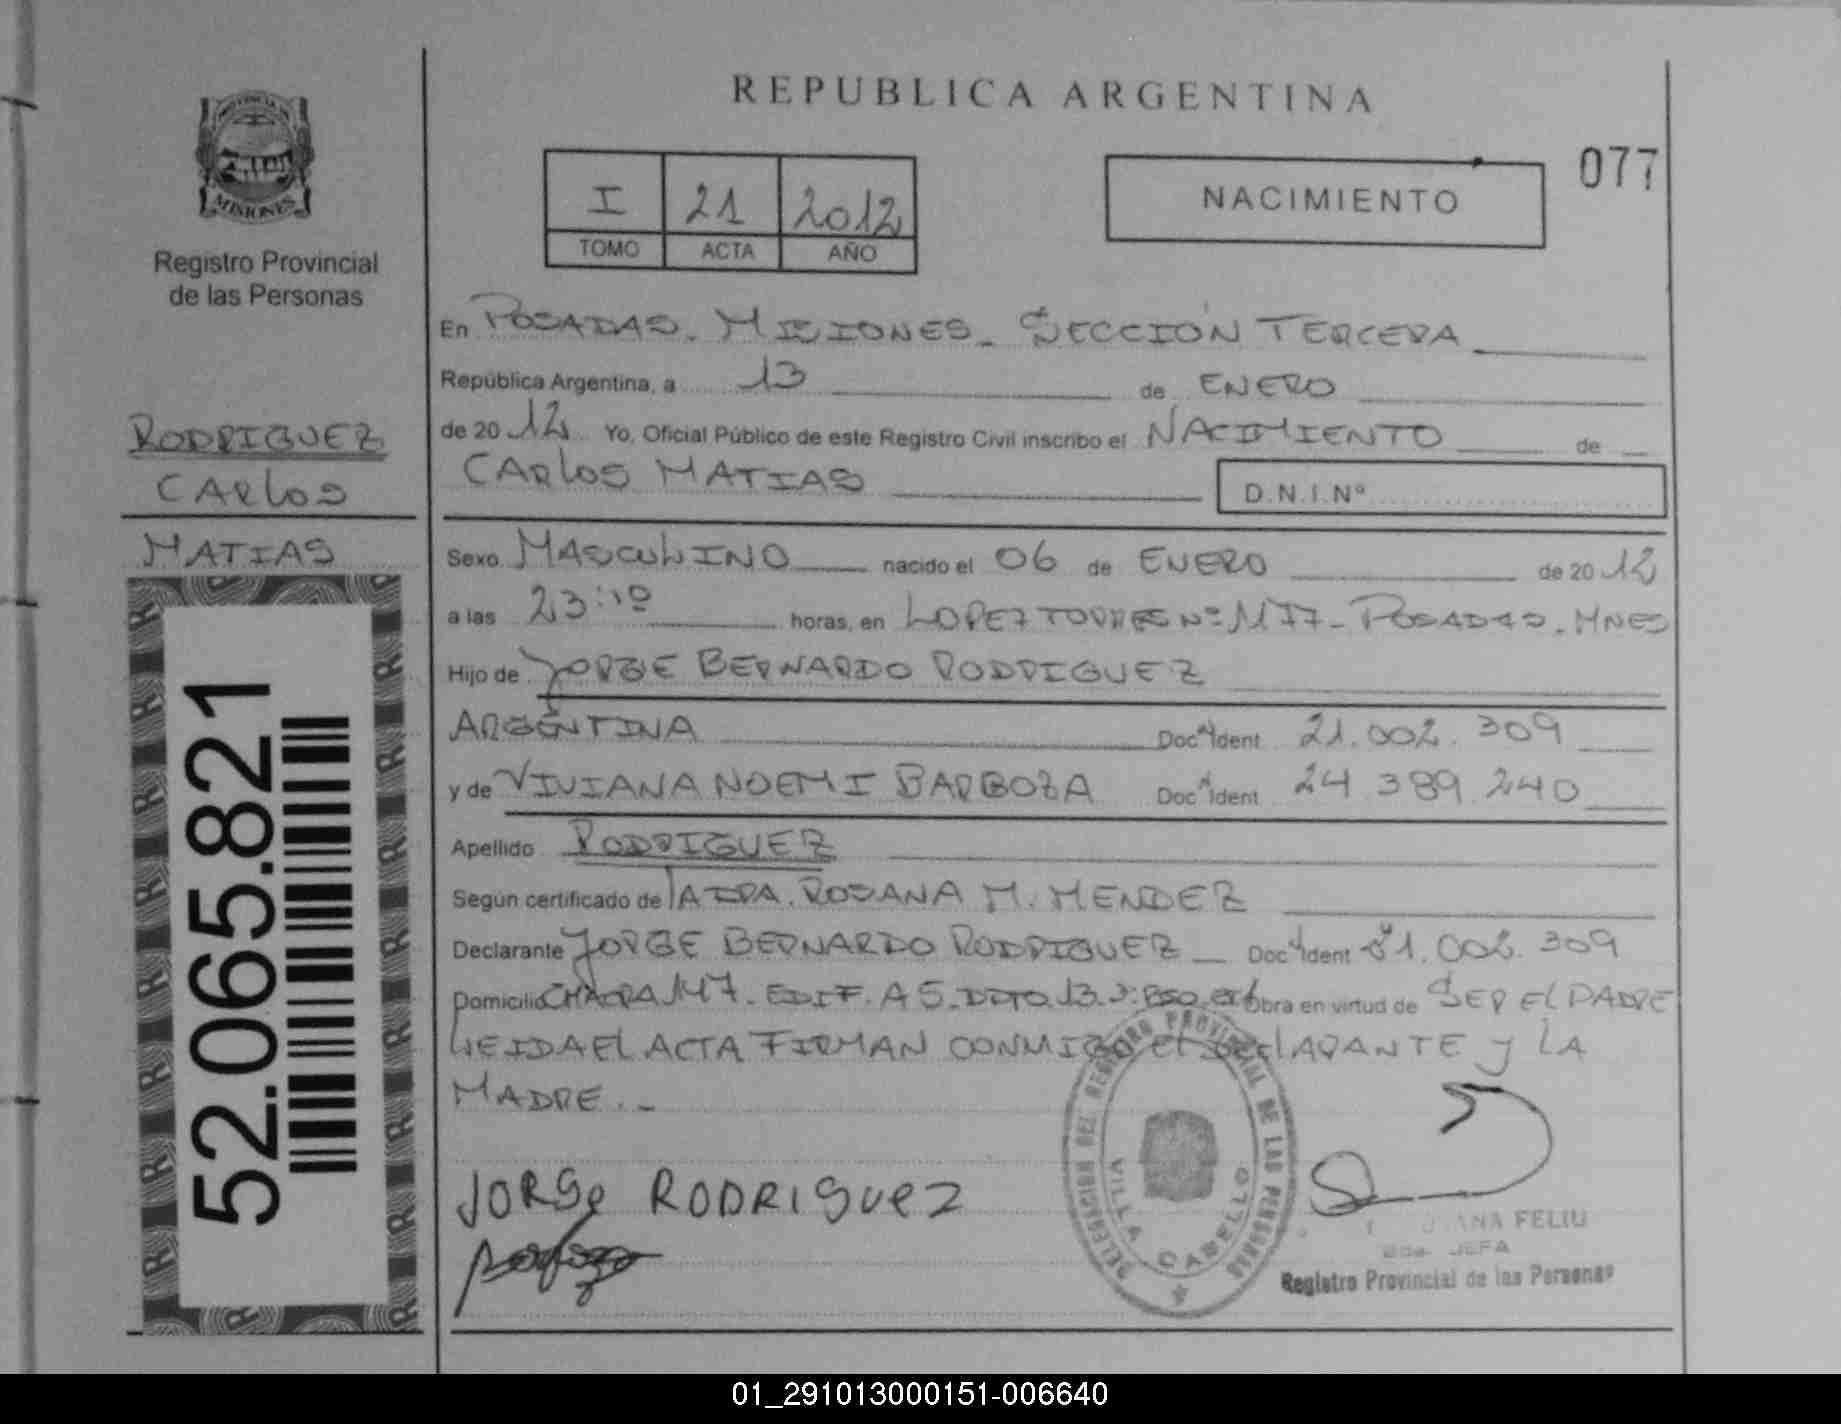 REPUBLICA ARGENTINA
PROVINCIA
MISIONES
Registro Provincial
de las Personas
I 21 2012
TOMO ACTA AÑO
NACIMIENTO
077
RODRIGUEZ
CARLOS
MATIAS
52.065.821
En POSADAS - MISIONES - SECCIÓN TERCERA
República Argentina, a 13 de ENERO
de 2012 Yo, Oficial Público de este Registro Civil inscribo el NACIMIENTO de
CARLOS MATIAS D.N.I.Nº
Sexo MASCULINO nacido el 06 de ENERO de 2012
a las 23:10 horas, en LOPEZ TORRES Nº 1177 - POSADAS - MNES
Hijo de JORGE BERNARDO RODRIGUEZ
ARGENTINA Doc. Ident 21.002.309
y de VIVIANA NOEMI BARBOZA Doc. Ident 24.389.240
Apellido RODRIGUEZ
Según certificado de ROSANA M. MENDEZ
Declarante JORGE BERNARDO RODRIGUEZ Doc. Ident 21.002.309
Domicilio CHACRA 147 - EDIF. A5 - DPTO 13 Obra en virtud de SER EL PADRE
LEIDA EL ACTA FIRMAN CONMIGO EL DECLARANTE Y LA
MADRE. -
JORGE RODRIGUEZ
DELEGACION DEL REGISTRO PROVINCIAL DE LAS PERSONAS
VILLA CABELLO
FELIU
JEFA
Registro Provincial de las Personas
01_291013000151-006640